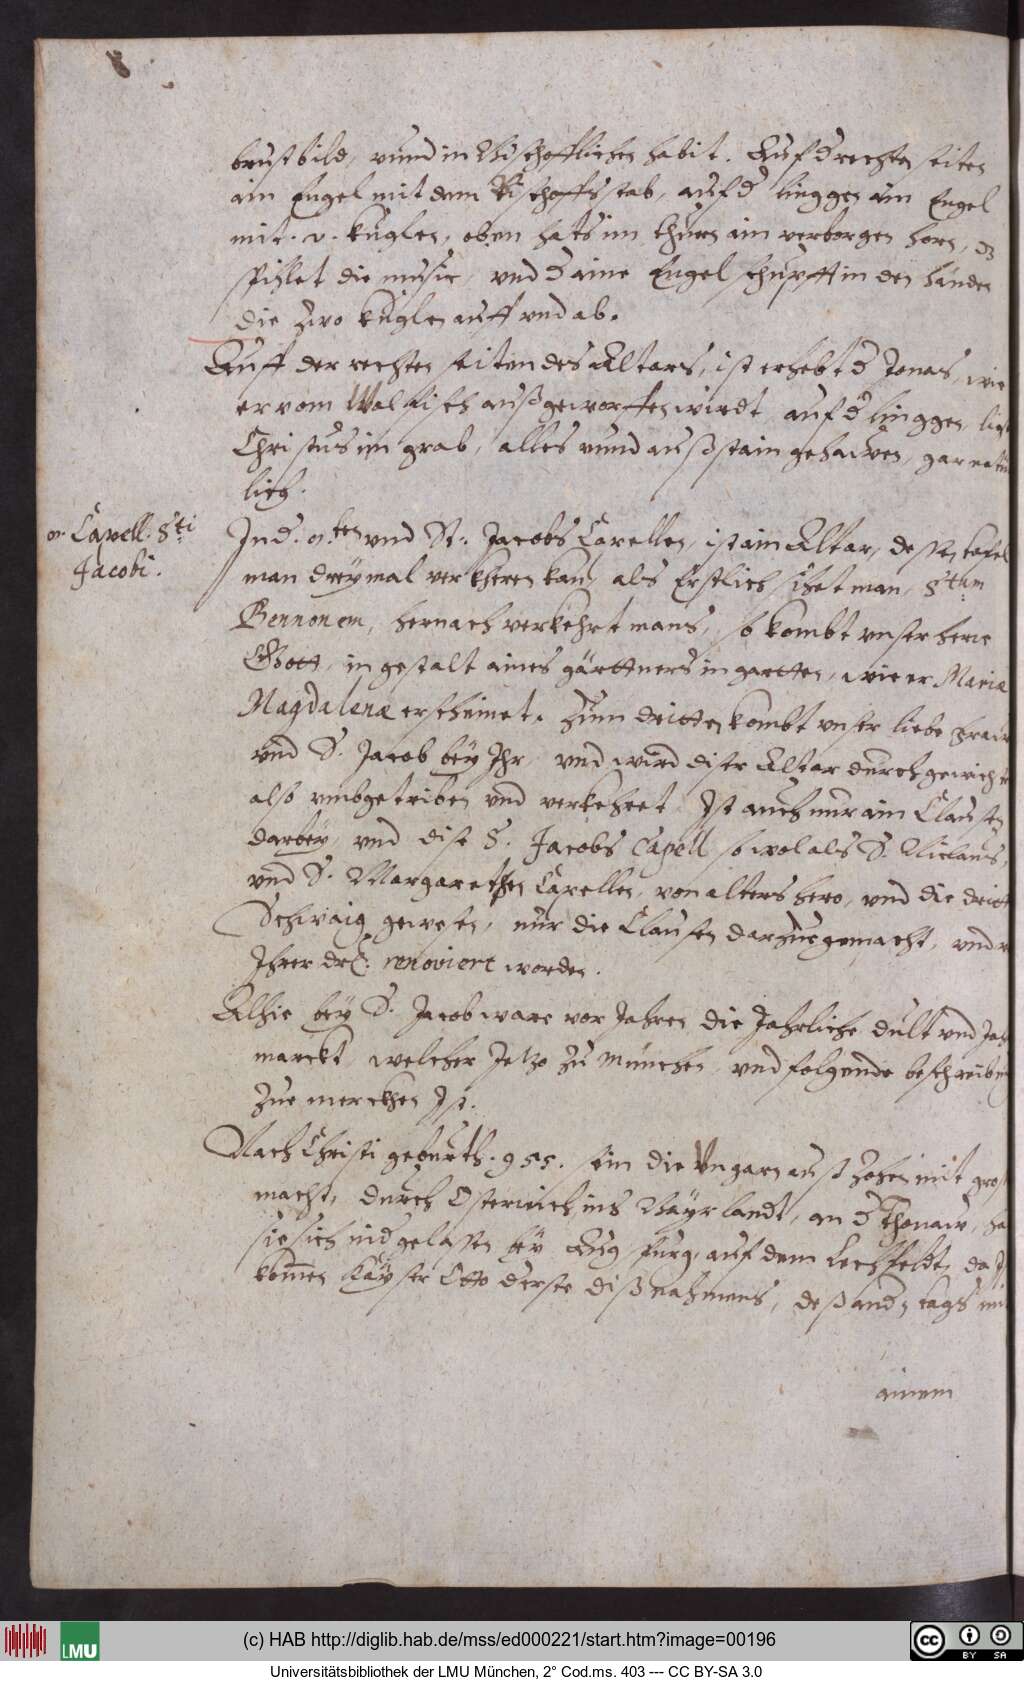 brustbild, vnnd in Bischofflichen habit. Auf d rechten seiten
ain Engel mit dem Bischoffstab, auf d linggen ain Engel
mit . 2 . kuglen, oben hats im thurn ain verborgen horn, dz
spihlet die music, vnd d aine Engel schupfft in den hånden
die zwo kuglen auff vnd ab.
Auff der rechten seiten des Altars, ist erhebt d Jonas, wie
er vom Walfisch außgeworffen wirdt, auf d linggen, ligt
Christus im grab, alles rund auß stain gehawen, gar natür
lich.
Capell. Sti
Jacobi.
In d . ten vnd St. Jacobs Capellen, ist ain Altar, dessen tafel
man dreymal verkheren kan, als Erstlich, sihet man, Stum
Bennonem, hernach verkehrt mans, so kombt vnser herre
Gott, in gestalt aines gärttners in gartten, wie er Mariæ
Magdalenæ erscheinet. Zum dritten kombt vnser liebe Fraw
vnd S. Jacob bey Ihr, vnd wird diser Altar durch gewicht
also vmbgetriben vnd verkehret. Ist auch nur ain Clausen
darbey, vnd dise S. Jacobs Capell so wol als S. Niclaus,
vnd S. Margarethen Capellen, von alters hero, vnd die dritt
Schwaig gewesen, nur die Clausen darzue gemacht, vnd v
Ihrer drl: renoviert worden.
Alhie bey S. Jacob ware vor Jahren die Jahrliche dult vnd Jah
marckt, welcher Jetzo zu München, vnd folgende beschreibung
zue merckhen Ist.
Nach Christi geburth . 955 . sein die Vngarn auß zohen mit gross
macht, durch Osterreich, ins Bayrlandt, an d Thonaw, ha
sie sich nid gelassen bey Augspurg, auf dem Lechfeldt, da I
komen Kayser Otto d erste diß nahmens, deß and tags mi
ainem
(c) HAB http://diglib.hab.de/mss/ed000221/start.htm?image=00196
LMU
BY SA
Universitätsbibliothek der LMU München, 2° Cod.ms. 403 --- CC BY-SA 3.0